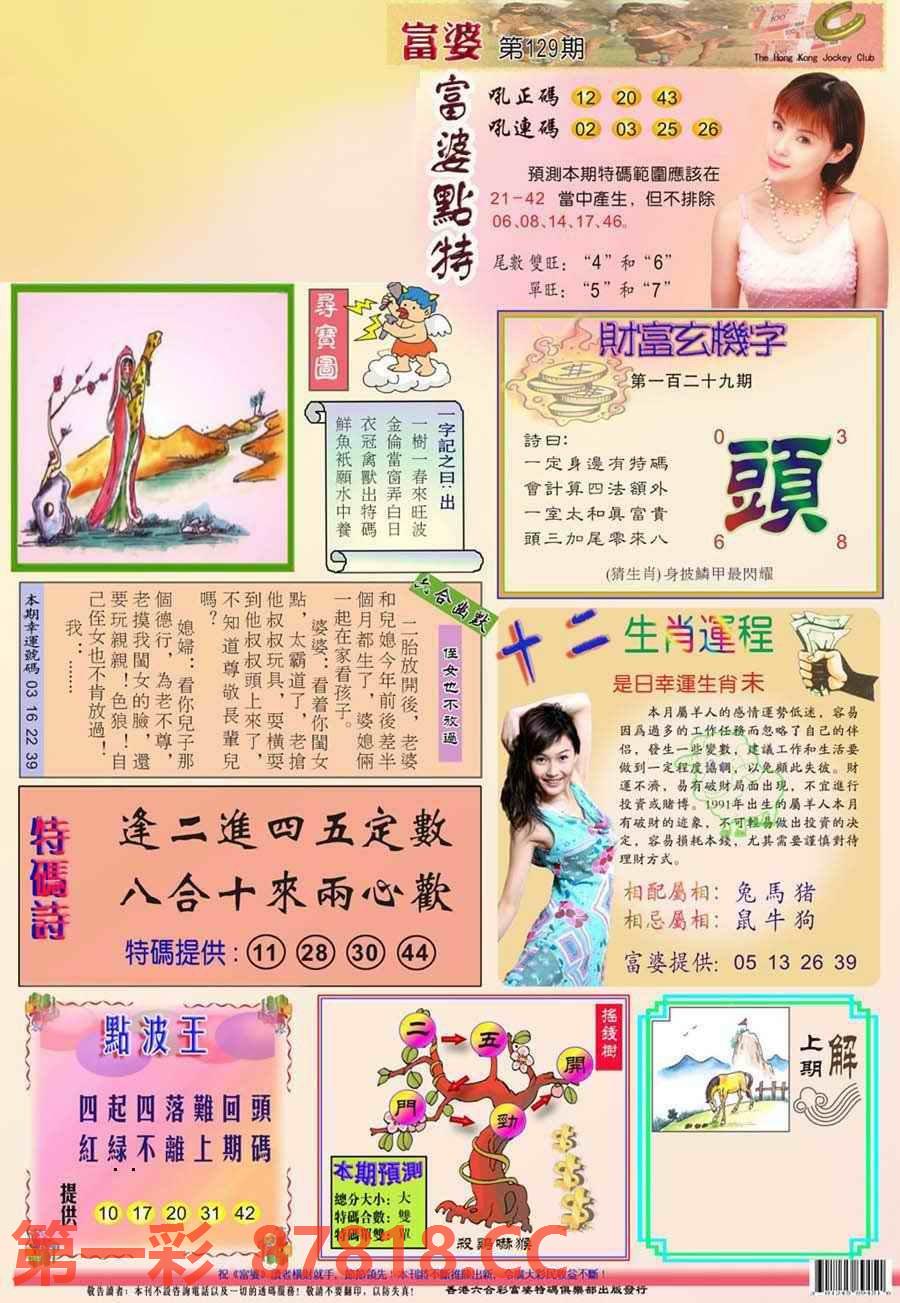 富婆 第129期
The Hong Kong Jockey Club
富婆點特
吼正碼 12 20 43
吼連碼 02 03 25 26
預測本期特碼範圍應該在
21-42 當中產生，但不排除
06.08.14.17.46。
尾數 雙旺：“4”和“6”
單旺：“5”和“7”
尋寶圖
一字記之曰：出
一樹一春來旺波
金倫當窗弄白日
衣冠禽獸出特碼
鮮魚衹願水中養
財富玄機字
第一百二十九期
詩曰：
一定身邊有特碼
會計算四法額外
一室太和真富貴
頭三加尾零來八
0 3
頭
6 8
(猜生肖)身披鱗甲最閃耀
六合幽默
侄女也不放過
二胎放開後，老婆
和兒媳今年前後差半
個月都生了，婆媳倆
一起在家看孩子。
婆婆：看着你閨女
點，太霸道了，老搶
他叔叔玩具，耍橫耍
到他叔叔頭上來了，
不知道尊敬長輩兒
嗎？
媳婦：看你兒子那
個德行，為老不尊，
老摸我閨女的臉，還
要玩親親！色狼！自
己侄女也不肯放過！
我：……
本期幸運號碼 03 16 22 39
十二生肖運程
是日幸運生肖未
本月屬羊人的感情運勢低迷，容易
因爲過多的工作任務而忽略了自己的伴
侶，發生一些變數，建議工作和生活要
做到一定程度協調，以免顧此失彼。財
運不濟，易有破財局面出現，不宜進行
投資或賭博。1991年出生的屬羊人本月
有破財的迹象，不可輕易做出投資的決
定，容易損耗本錢，尤其需要謹慎對待
理財方式。
相配屬相：兔馬猪
相忌屬相：鼠牛狗
富婆提供：05 13 26 39
特碼詩
逢二進四五定數
八合十來兩心歡
特碼提供：11 28 30 44
點波王
四起四落難回頭
紅绿不離上期碼
提供 10 17 20 31 42
搖錢樹
二 五 開
門 勁
本期預測
總分大小：大
特碼合數：雙
特碼單雙：單
殺鷄嚇猴
上期解
第一彩 87818.CC
祝《富婆》讀者橫財就手，節節領先！本刊將不斷推陳出新，令廣大彩民收益不斷！
敬告讀者：本刊不設咨詢電話以及一切的透碼服務！敬請不要翻印，以防失真！
香港六合彩富婆特碼俱樂部出版發行